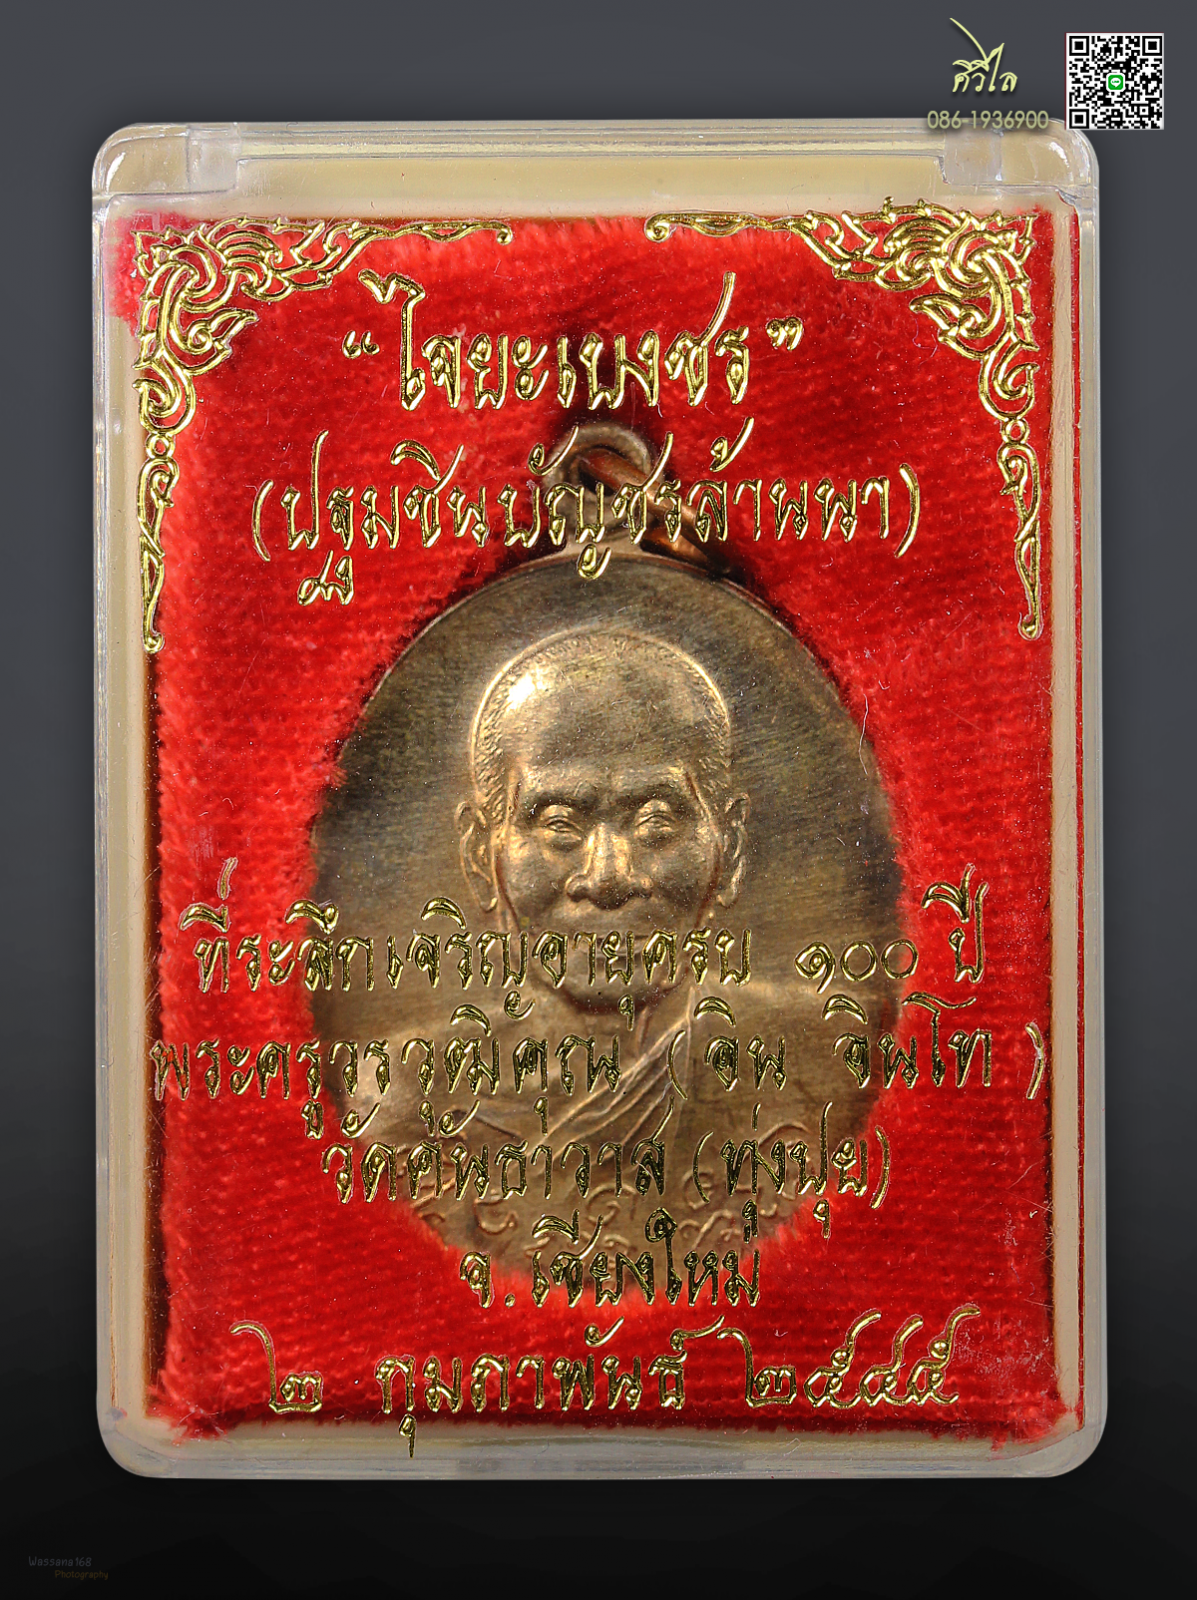 ศิวิไล
086-1936900
“ไจยะเบงชร”
(ปฐมชินบัญชรล้านนา)
ที่ระลึกเจริญอายุครบ ๑๐๐ ปี
พระครูวรวุฒิคุณ ( อิน อินโท )
วัดคันธาวาส (ทุ่งปุย)
จ.เชียงใหม่
๒ กุมภาพันธ์ ๒๕๔๕
Wassana168
Photography